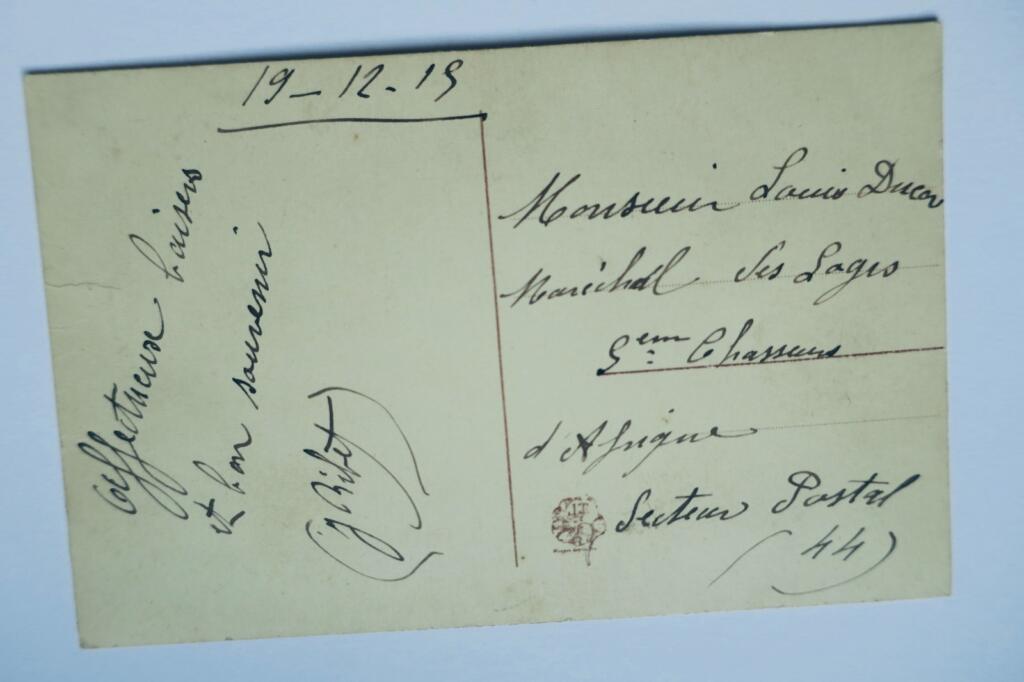 19-12-15
Affectueux baisers
et bon souvenir
Monsieur Louis
Maréchal des Logis
5ème Chasseurs
d'Afrique
Secteur Postal
(44)